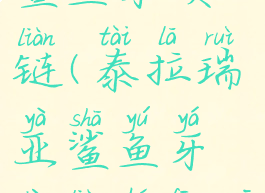 liàn tài lā ruì
链(泰拉瑞
yà shā yú yá
亚鲨鱼牙